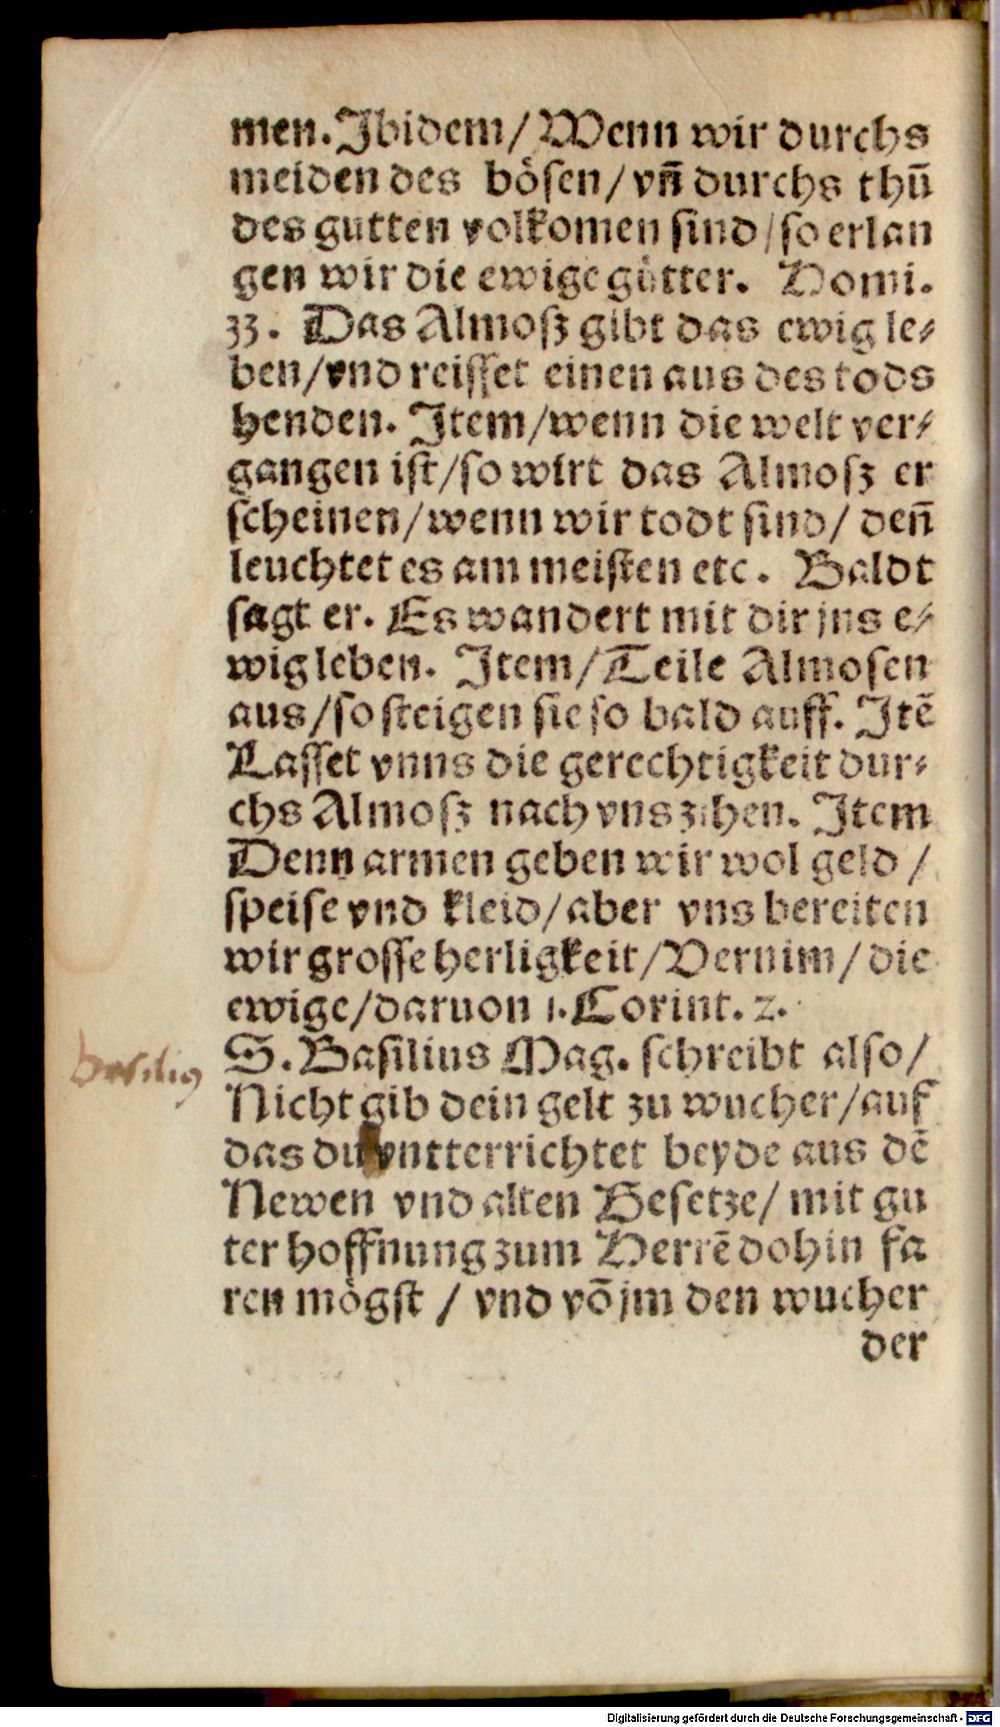 men. Jbidem/ Wenn wir durchs
meiden des bösen/ vñ durchs thū
des gutten volkomen sind/ so erlan
gen wir die ewige gütter. Homi.
33. Das Almosz gibt das ewig le⸗
ben/ vnd reisset einen aus des tods
henden. Jtem/ wenn die welt ver⸗
gangen ist/ so wirt das Almosz er
scheinen/ wenn wir todt sind/ deñ
leuchtet es am meisten etc. Baldt
sagt er. Es wandert mit dir jns e⸗
wig leben. Jtem/ Teile Almosen
aus/ so steigen sie so bald auff. Jtē
Lasset vnns die gerechtigkeit dur⸗
chs Almosz nach vns zihen. Jtem
Denn armen geben wir wol geld/
speise vnd kleid/ aber vns bereiten
wir grosse herligkeit/ Vernim/ die
ewige/ daruon 1. Corint. 2.
S. Basilius Mag. schreibt also/
Nicht gib dein gelt zu wucher/ auf
das du vntterrichtet beyde aus dē
Newen vnd alten Gesetze/ mit gu
ter hoffnung zum Herrē dohin fa
ren mögst / vnd vō jm den wucher
der
basilius
Digitalisierung gefördert durch die Deutsche Forschungsgemeinschaft - DFG